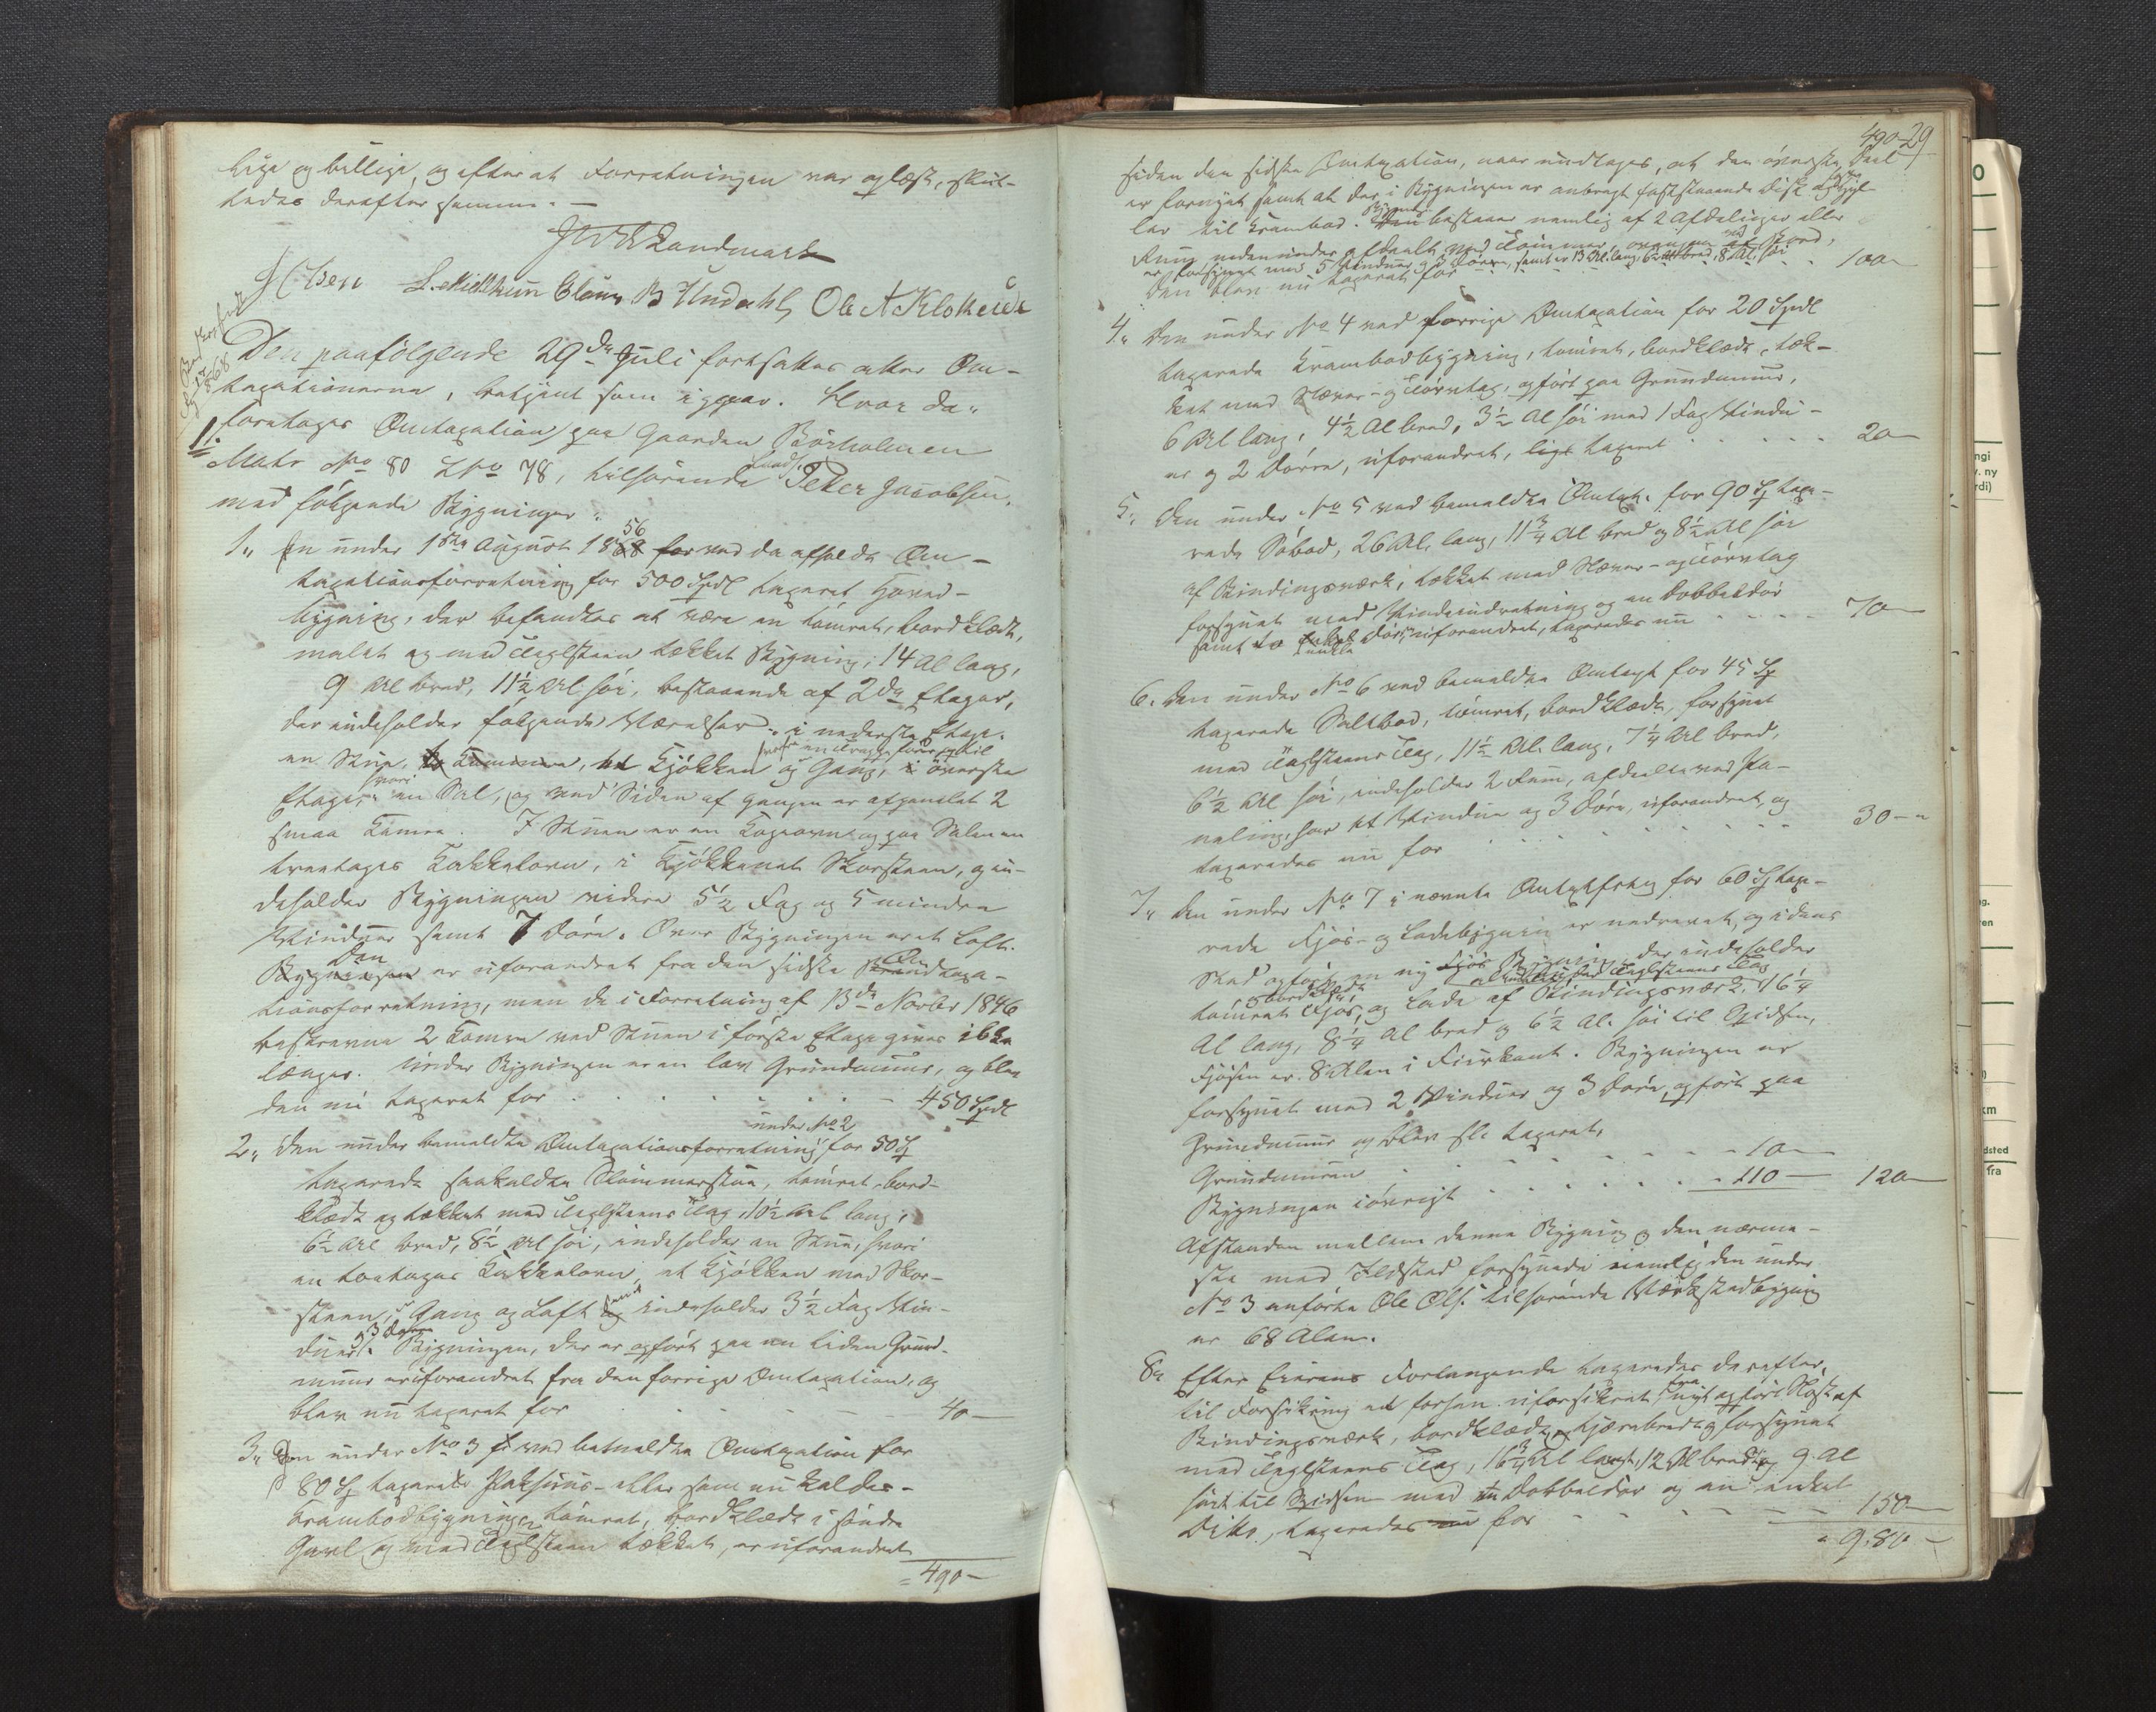 lige og billige, og efter at Forretningen var oplæst, slut-
tedes derefter samme. —
Landmark
J. Olsen L. Mielthun Claus B Undahl Ole A Klokeide
Den paafølgende 29de Juli fortsattes atter Om-
taxationerne, betjent som igaar. Hvor da
foretoges Omtaxation paa Gaarden Børholmen
1.
Matr No 80 LNo 78, tilhørende Landh. Peter Jacobsen,
med følgende Bygninger:
1„ En under 1ste August 1856 ved da afholdt Om-
taxationsforretning for 500 Spdl taxeret Hoved-
bygning, der befandtes at være en tømret, bordklædt,
malet og med Teglsteen tækket Bygning, 14 Al lang,
9 Al bred, 11½ Al høi, bestaaende af 2de Etager,
der indeholder følgende Værelser: i nederste Etage
en Stue, et Kjøkken og Gang, hvorfra en Trappe fører op til øverste
Etage, hvori en Sal, og ved Siden af Gangen er afpanelet 2
smaa Kamre. I Stuen er en Kogeovn og paa Salen en
treetages Kakkelovn, i Kjøkkenet Skorsteen, og in-
deholder Bygningen videre 5½ Fag og 5 mindre
Vinduer samt 7 Døre. Over Bygningen er et Loft.
Den er uforandret fra den sidste Omtaxa-
tionsforretning, men de i Forretning af 13de Novbr 1846
beskrevne 2 Kamre ved Stuen i første Etage gives ikke
længer. Under Bygningen er en lav Grundmuur, og blev
den nu taxeret for . . . . . . — 450 Spdl
2„ Den under bemeldte Omtaxationsforretning under No 2 for 50 Sp
taxerede saakaldte Skommerstue, tømret, bord-
klædt og tækket med Teglsteens Tag, 10½ Al lang,
6½ Al bred, 8½ Al høi, indeholder en Stue, hvori
en toetages Kakkelovn, et Kjøkken med Skor-
steen, Gang og Loft samt indeholder 3½ Fag Vin-
duer og 3 Døre. Bygningen, der er opført paa en liden Grund-
muur er uforandret fra den forrige Omtaxation, og
blev nu taxeret for . . . . — 40 —
3„ Den under No 3 ved bemeldte Omtaxation for
80 Sp taxerede Pakhuus- eller som nu kaldes
Krambodbygning, tømret, bordklædt i søndre
Gavl og med Teglsteen tækket, er uforandret
= 490 —
490 — 29
siden den sidste Omtaxation, naar undtages, at den øverste Deel
er fornyet samt at der i Bygningen er anbragt faststaaende Disk og Hyl-
ler til Krambod. Bygningen bestaaer nemlig af 2 Afdelinger eller
Rum nedenunder afdeelt ved Tømmer, ovenpaa ved Bord,
er forsynet med 5 Vinduer og 5 Døre, samt er 13 Al. lang, 6½ Al bred, 8 Al. høi
Den blev nu taxeret for . . . . . 100 —
4„ Den under No 4 ved forrige Omtaxation for 20 Spdl
taxerede Krambodbygning, tømret, bordklædt, tæk-
ket med Næver- og Tørvtag, opført paa Grundmuur,
6 Al lang, 4½ Al bred, 3½ Al høi med 1 Fag Vindu-
er og 2 Døre, uforandret, lige taxeret . . . . . 20 —
5„ Den under No 5 ved bemeldte Omtax. for 90 Sp taxe-
rede Søbod, 26 Al. lang, 11¾ Al bred og 8½ Al høi
af Bindingsværk, tækket med Næver- og Tørvtag
forsynet med Vindeindretning og en Dobbeldør
samt to enkelte Døre, uforandret, taxeredes nu . . . . 70 —
6. Den under No 6 ved bemeldte Omtaxt for 45 Sp
taxerede Saltbod, tømret, bordklædt, forsynet
med Teglsteens Tag, 11½ Al. lang, 7¼ Al bred,
6½ Al høi, indeholder 2 Rum, afdeelte ved Pa-
neling, har et Vindue og 3 Døre, uforandret, og
taxeredes nu for . . . . . . . . 30 - „
7„ Den under No 7 i nævnte Omtxtfrtng for 60 Sp taxe-
rede Fjøs- og Ladebygning er nedrevet, og i dens
Sted opført en ny Bygning med Teglsteens Tag, der indeholder
tømret, bordklædt Fjøs, og Lade af Bindingsværk, 16¼
Al lang, 8¼ Al bred og 6½ Al. høi til Gidsen,
Fjøsen er 8 Alen i Fiirkant. Bygningen er
forsynet med 2 Vinduer og 3 Døre, opført paa
Grundmuur og blev sl. taxeret,
Grundmuren . . . . . . . . - 10 —
Bygningen iøvrigt . . . . . . - 110 — 120 —
Afstanden mellem denne Bygning og den nærme-
ste med Ildsted forsynede nemlig den under
No 3 anførte Ole Ols. tilhørende Værkstedbygning
er 68 Alen.
8„ Efter Eierens Forlangende taxeredes derefter
til Forsikring et forhen uforsikret, nyt opført Nøst af
Bindingsværk, bordklædt, tjærebredt og forsynet
med Teglsteens Tag, 16¾ Al langt, 12 Al bredt og 9 Al
høit til Gidsen med en Dobbeldør og en enkelt
Ditto, taxeredes for . . . . . — 150 —
= 980 —